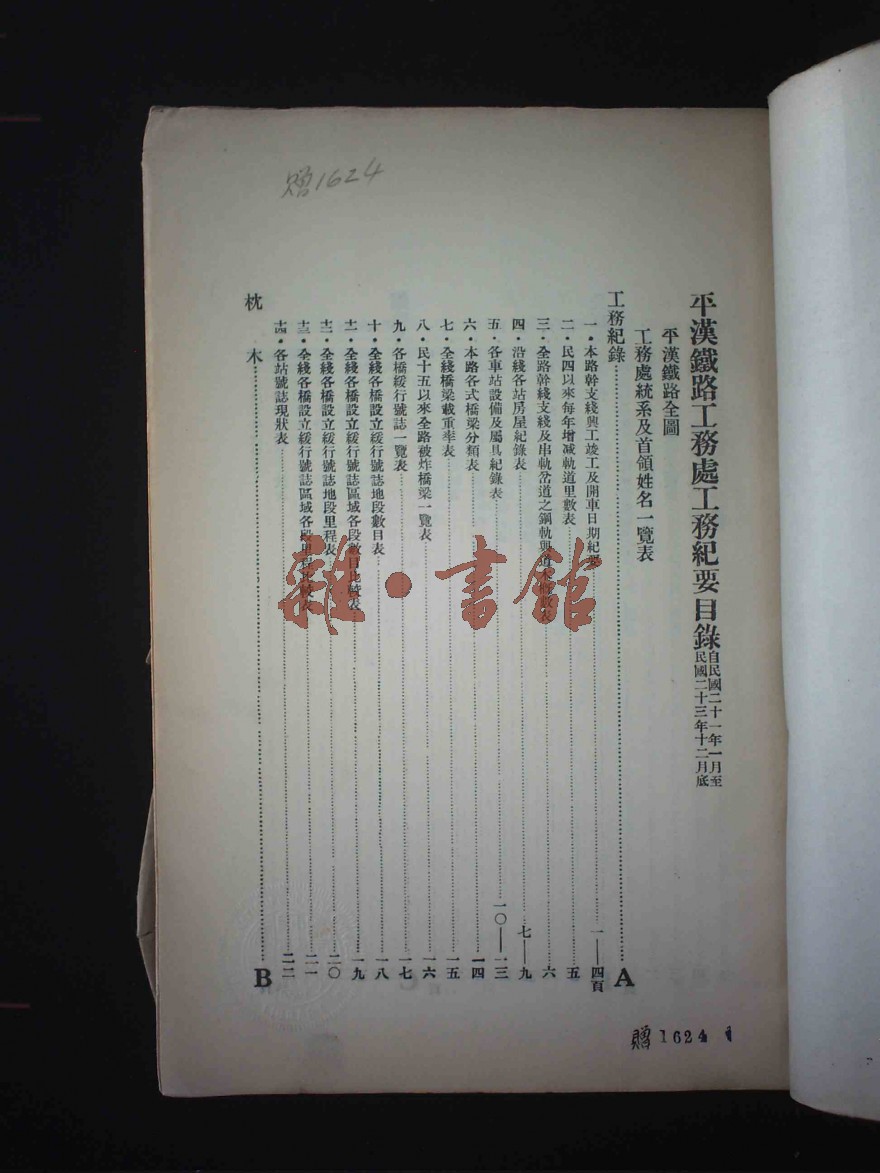 贈1624
平漢鐵路工務處工務紀要目錄 自民國二十一年一月至
民國二十三年十二月底
平漢鐵路全圖
工務處統系及首領姓名一覽表
工務紀錄 A
一・本路幹支綫興工竣工及開車日期紀要 一——四頁
二・民四以來每年增減軌道里數表 五
三・全路幹綫支綫及串軌岔道之鋼軌與道木根數表 六
四・沿綫各站房屋紀錄表 七——九
五・各車站設備及屬具紀錄表 一〇——一三
六・本路各式橋梁分類表 一四
七・全綫橋梁載重率表 一五
八・民十五以來全路被炸橋梁一覽表 一六
九・各橋緩行號誌一覽表 一七
十・全綫各橋設立緩行號誌地段數目表 一八
十一・全綫各橋設立緩行號誌區域各段數目比較表 一九
十二・全綫各橋設立緩行號誌地段里程表 二〇
十三・全綫各橋設立緩行號誌區域各段里程比較表 二一
十四・各站號誌現狀表 二二
枕木 B
雜・書館
贈 1624